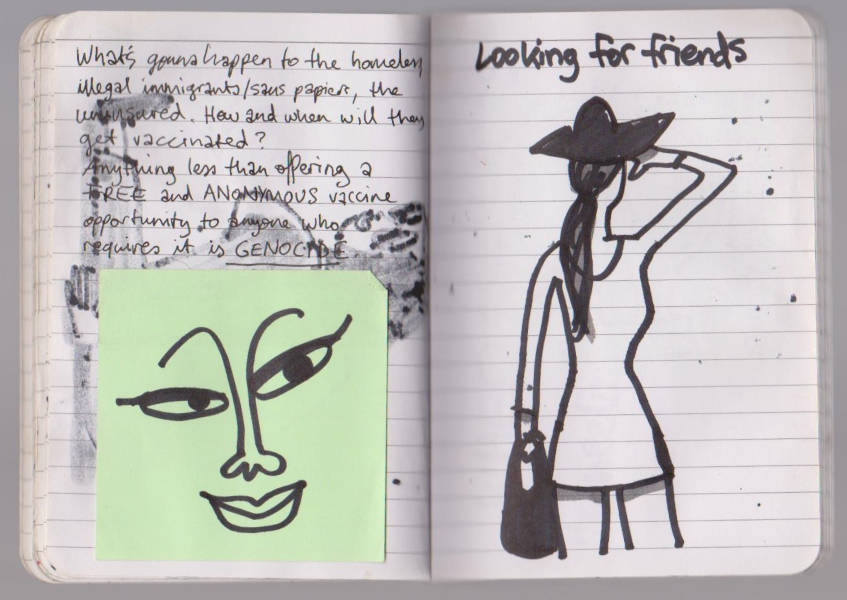 What's gonna happen to the homeless,
illegal immigrants/sans papiers, the
uninsured. How and when will they
get vaccinated?
Anything less than offering a
FREE and ANONYMOUS vaccine
opportunity to anyone who
requires it is GENOCIDE
Looking for friends